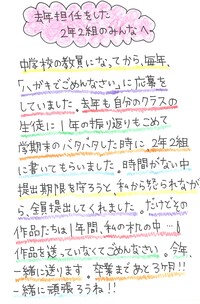 去年担任をした
2年2組のみんなへ
中学校の教員になってから、毎年、
「ハガキでごめんなさい」に応募を
していました。去年も自分のクラスの
生徒に1年の振り返りもこめて
学期末のバタバタした時に、2年2組
に書いてもらいました。時間がない中
提出期限を守ろうと、私から迫られなが
ら、全員提出してくれました。だけどその
作品たちは1年間、私の机の中…!
作品を送っていなくてごめんなさい。今年、
一緒に送ります。卒業まであと3ヶ月!!
一緒に頑張ろうね!!